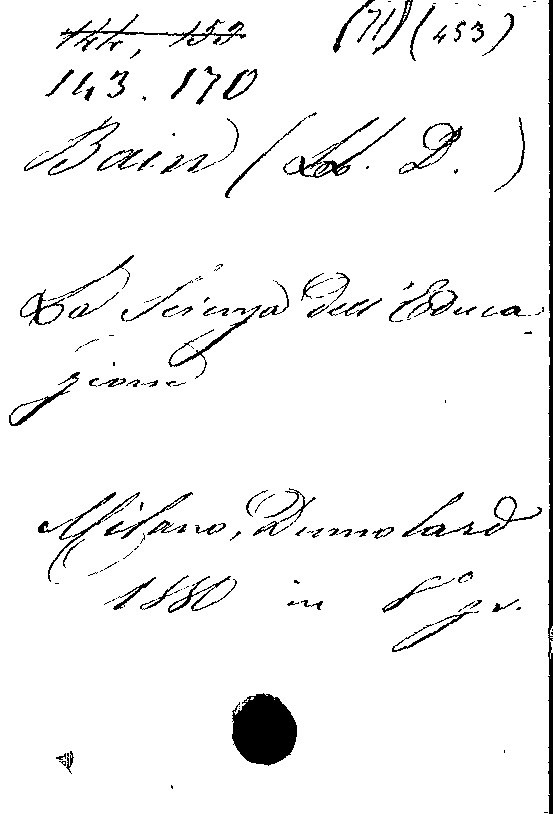 144, 152 (71) (453)
143. 170
Bain (LL. D.)
La Scienza dell'Educa
zione
Milano, Dumolard
1880 in 8° gr.